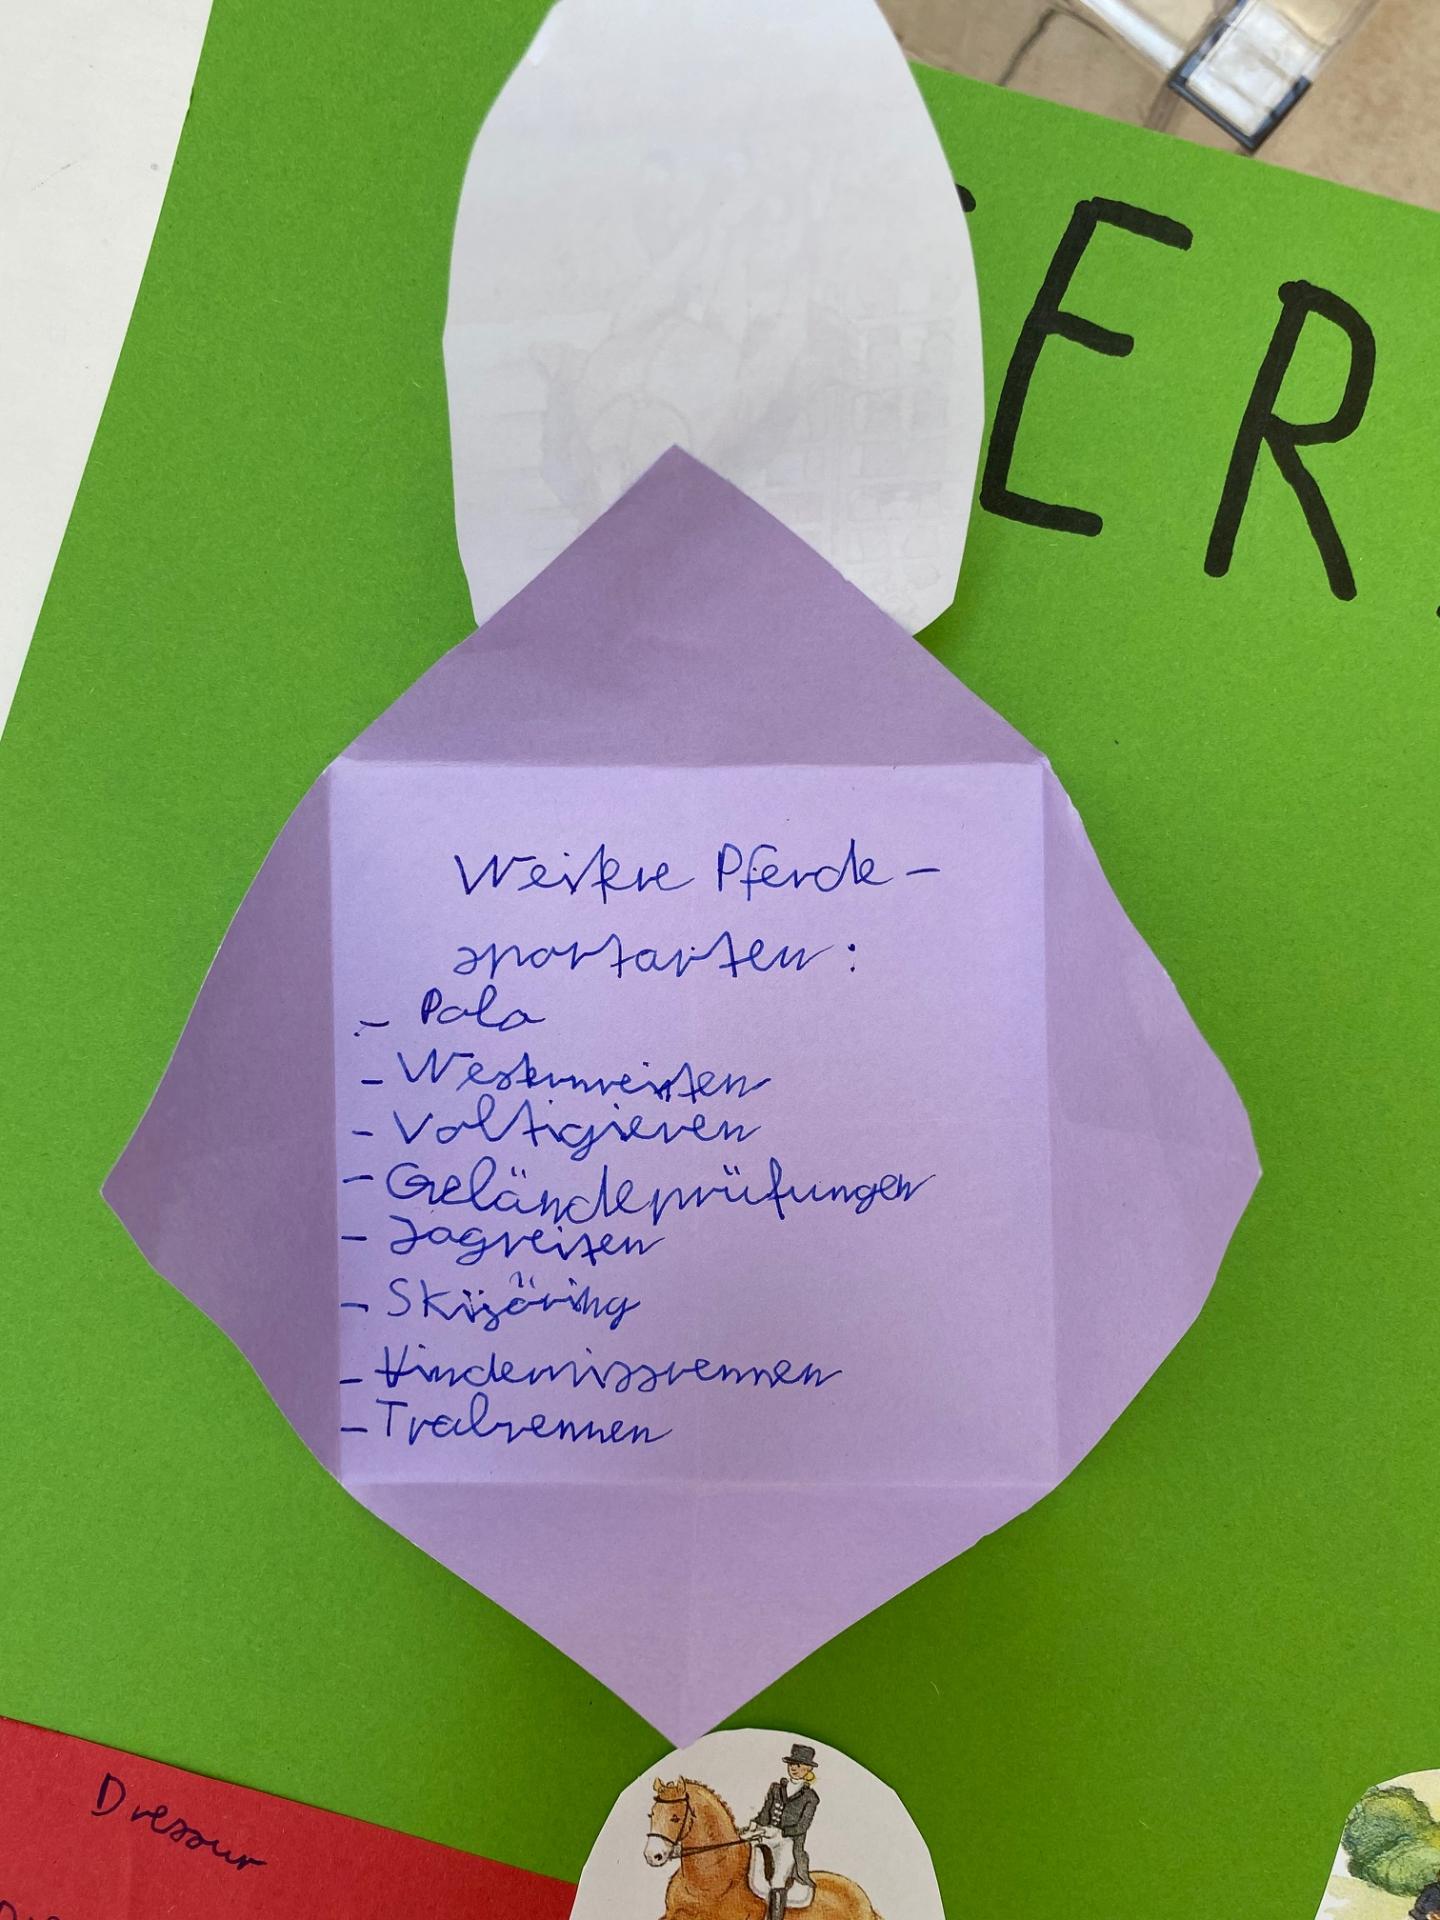 ER
Weitere Pferde-
sportarten:
- Polo
- Westernreiten
- Voltigieren
- Geländeprüfungen
- Jagreiten
- Skijöring
- Hindernissrennen
- Trabrennen
Dressur